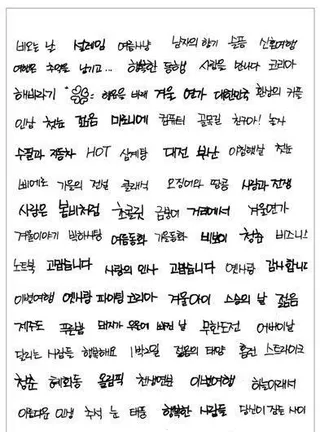 비오는 날 설레임 여름사냥 남자의 향기 슬픔 신혼여행
여행은 추억을 남기고... 행복한 동행 사랑을 만나다 코리아
해바라기 행운을 바래 겨울 연가 대한민국 환상의 커플
인상 첫눈 젊음 마로니에 컴퓨터 골목길 친구야! 놀자
수필과 자동차 HOT 삼계탕 대전 부산 아침햇살 첫눈
삐에로 가을의 전설 클래식 오징어와 땅콩 사랑과 전쟁
사람은 봄비처럼 초콜릿 금붕어 거리에서 겨울연가
겨울이야기 밤하늘 여름동화 가을동화 비보이 청춘 비즈니스
노트북 고맙습니다 사랑의 인사 고맙습니다 옛사랑 감사합니다
이별여행 옛사랑 파이팅 코리아 겨울아이 스승의 날 젊음
제주도 푸른밤 돼지가 우물에 빠진 날 무한도전 어버이날
달리는 사람들 행복해요 1박2일 젊음의 태양 훈련 스트라이크
청춘 혜화동 올림픽 천생연분 이별여행 하늘아래서
아름다운 인생 추석 눈 태풍 행복한 사람들 당신이 잠든 사이